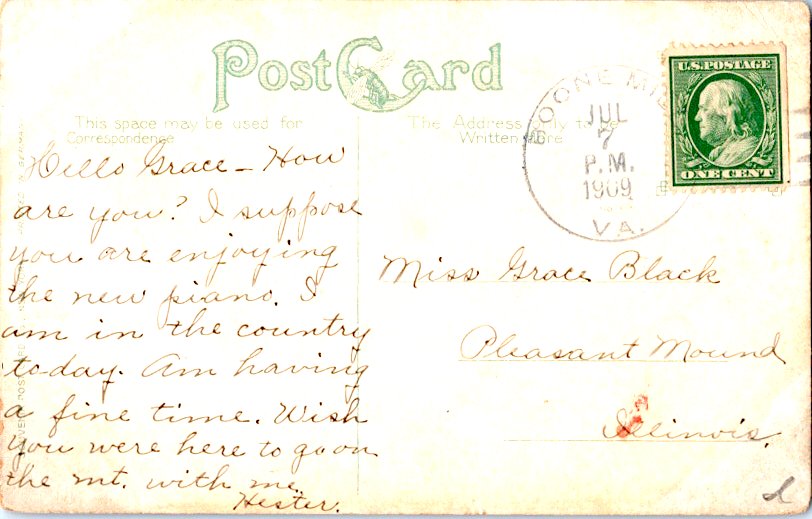 Post Card
This space may be used for
Correspondence
The Address only to be
Written Here
BOONE MILL
JUL
7
P.M.
1909
VA.
U.S. POSTAGE
ONE CENT
Hello Grace – How
are you? I suppose
you are enjoying
the new piano. I
am in the country
to-day. Am having
a fine time. Wish
you were here to go on
the mt. with me.
Hester.
Miss Grace Black
Pleasant Mound
Illinois.